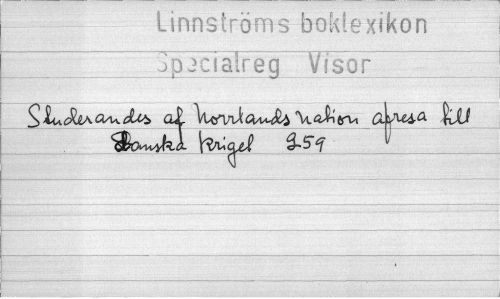 Linnströms boklexikon
Specialreg Visor
Studerandes af Norrlands nation afresa till
Danska kriget 259